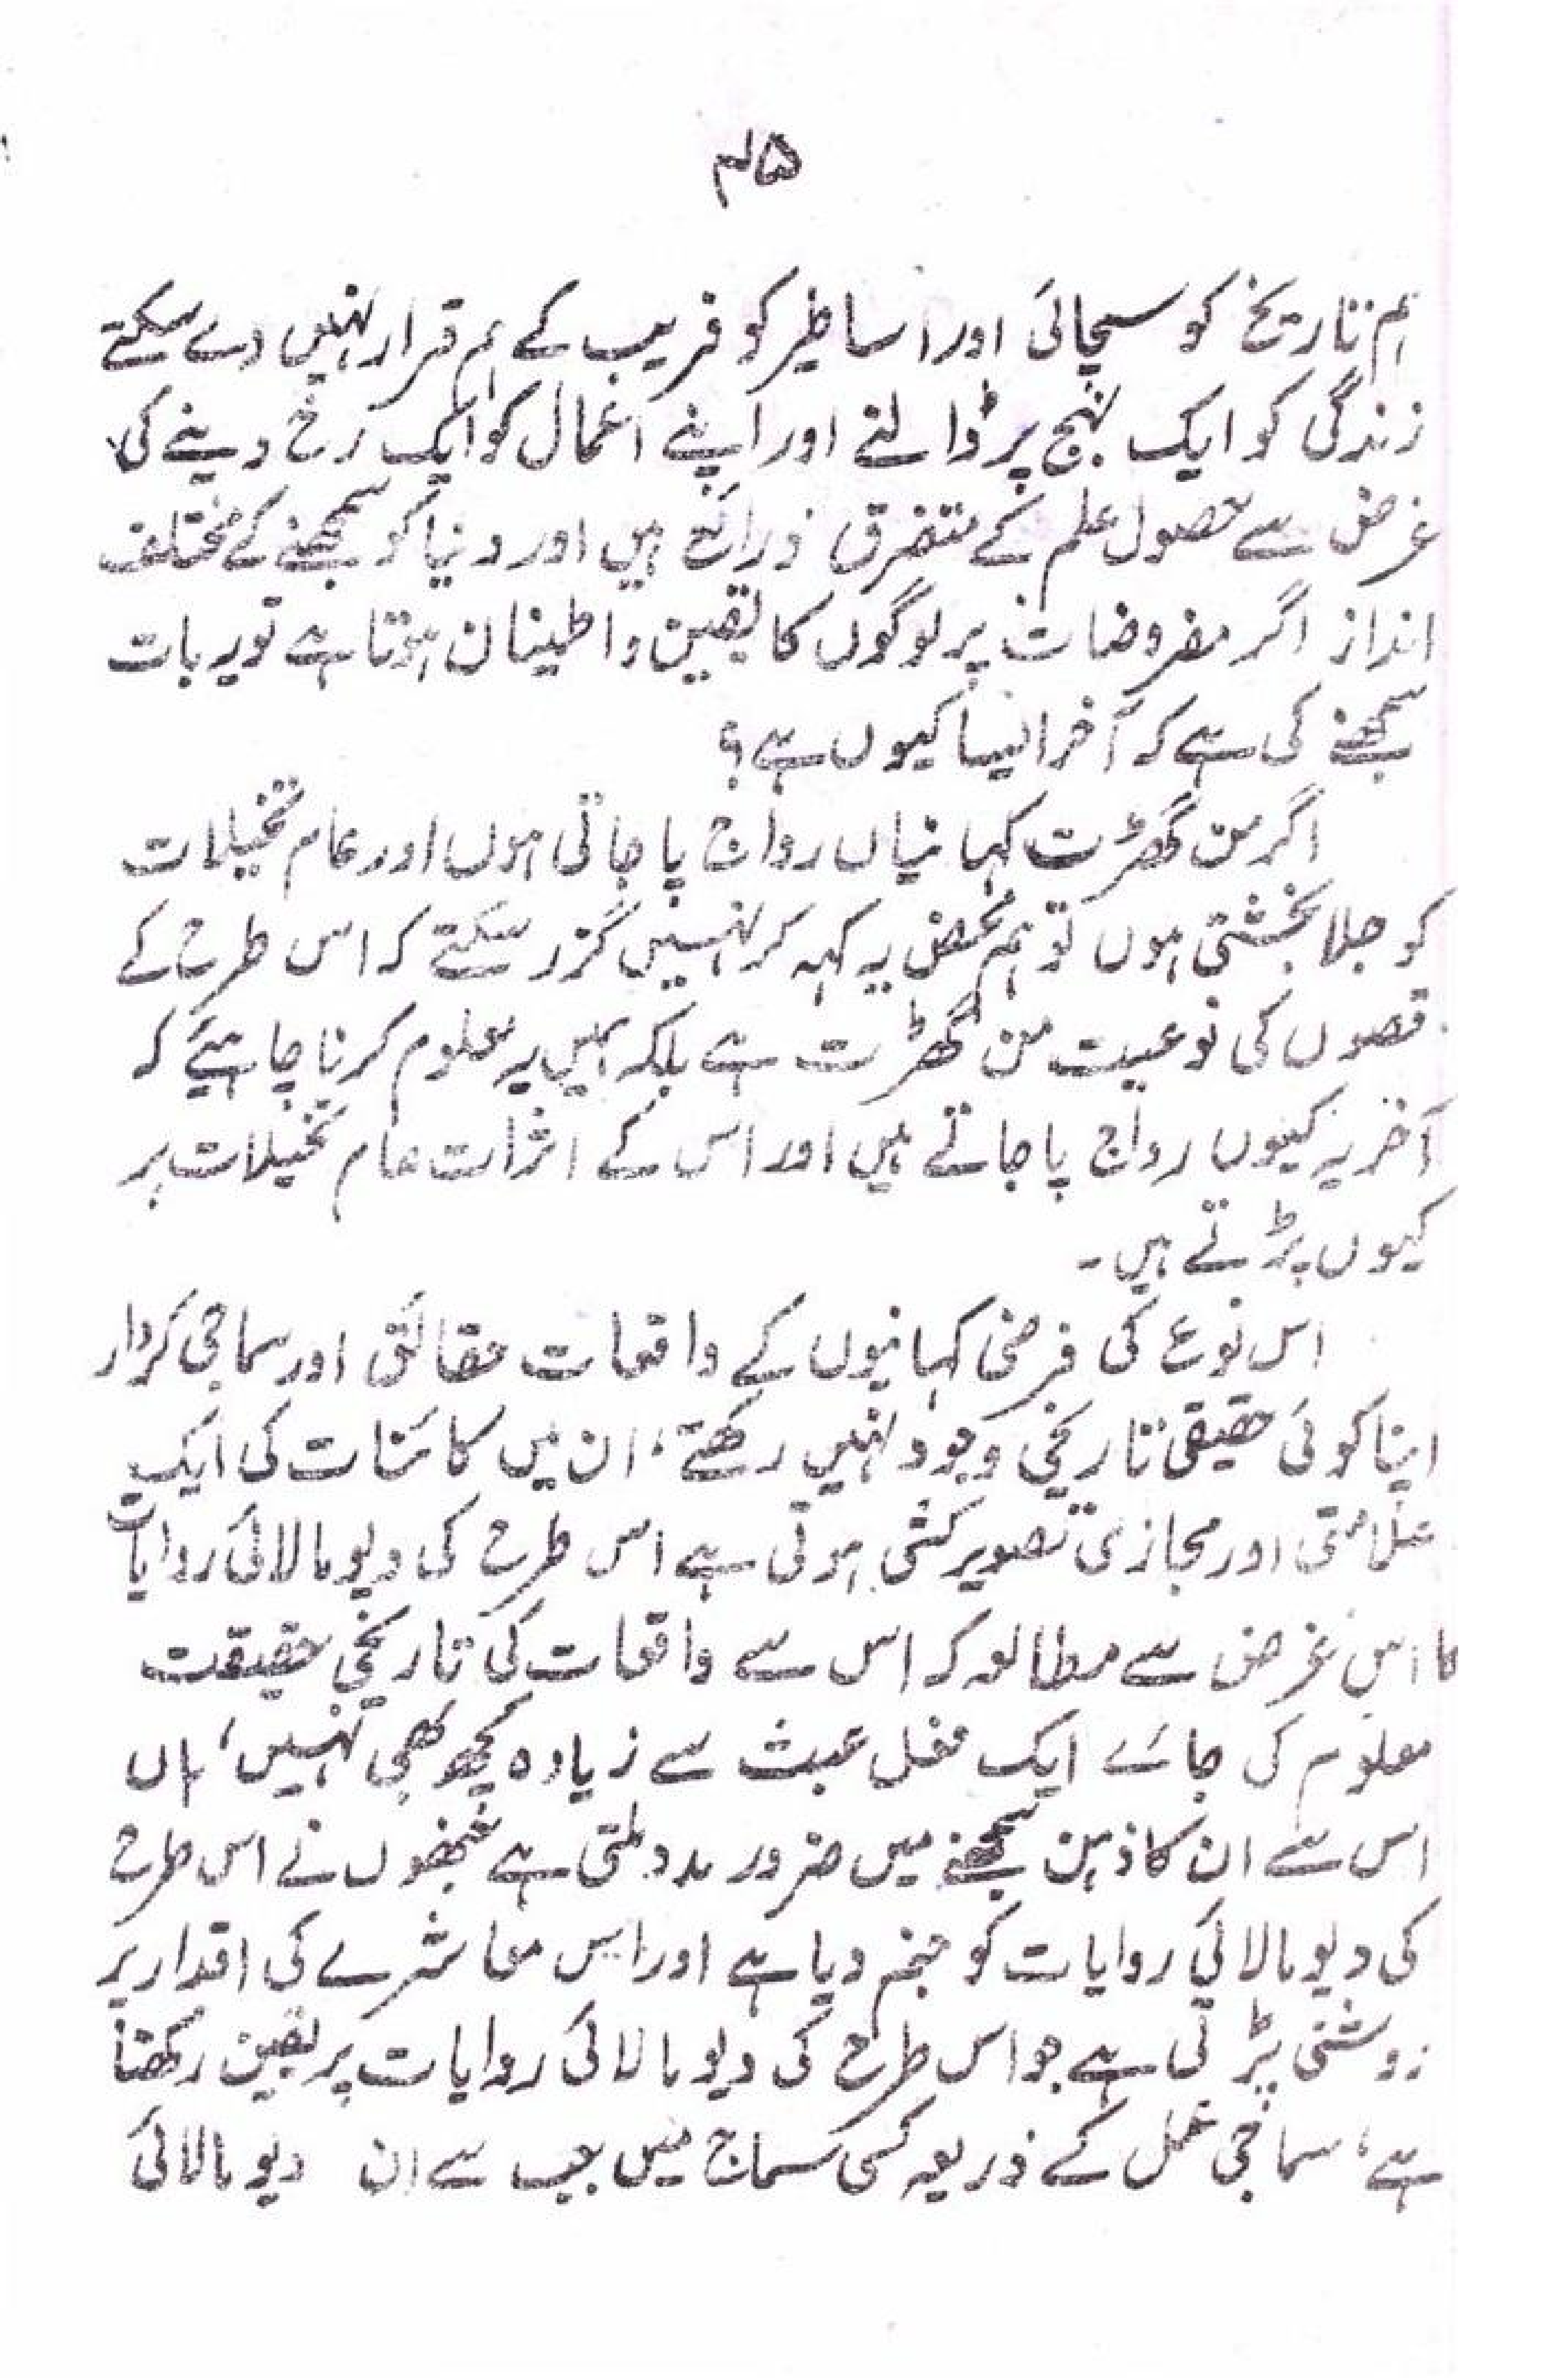 ۴۵
ہم تاریخ کو سچائی اور اساطیر کو فریب کے ہم قرار نہیں دے سکتے
زندگی کو ایک نہج پر ڈالنے اور اپنے اعمال کو ایک رخ دینے کی
غرض سے حصول علم کے متفرق ذرائع ہیں اور دنیا کو سمجھنے کے مختلف
انداز اگر مفروضات پر لوگوں کا یقین و اطمینان ہوتا ہے تو یہ بات
سمجھنے کی ہے کہ آخر ایسا کیوں ہے؟
اگر من گھڑت کہانیاں رواج پا جاتی ہوں اور عام تخیلات
کو جلا بخشتی ہوں تو ہم محض یہ کہہ کر نہیں گزر سکتے کہ اس طرح کے
قصوں کی نوعیت من گھڑت ہے بلکہ ہمیں یہ معلوم کرنا چاہیئے کہ
آخر یہ کیوں رواج پا جاتے ہیں اور اس کے اثرات عام تخیلات پر
کیوں پڑتے ہیں۔
اس نوع کی فرضی کہانیوں کے واقعات حقائق اور سماجی کردار
اپنا کوئی حقیقی تاریخی وجود نہیں رکھتے، ان میں کائنات کی ایک
علامتی اور مجازی تصویر کشی ہوتی ہے اس طرح کی دیومالائی روایات
کا اس غرض سے مطالعہ کہ اس سے واقعات کی تاریخی حقیقت
معلوم کی جائے ایک فعل عبث سے زیادہ کچھ بھی نہیں، ہاں
اس سے ان کا ذہن سمجھنے میں ضرور مدد ملتی ہے جنھوں نے اس طرح
کی دیومالائی روایات کو جنم دیا ہے اور اس معاشرے کی اقدار پر
روشنی پڑتی ہے جو اس طرح کی دیومالائی روایات پر یقین رکھتا
ہے، سماجی عمل کے ذریعہ کسی سماج میں جب سے ان دیومالائی